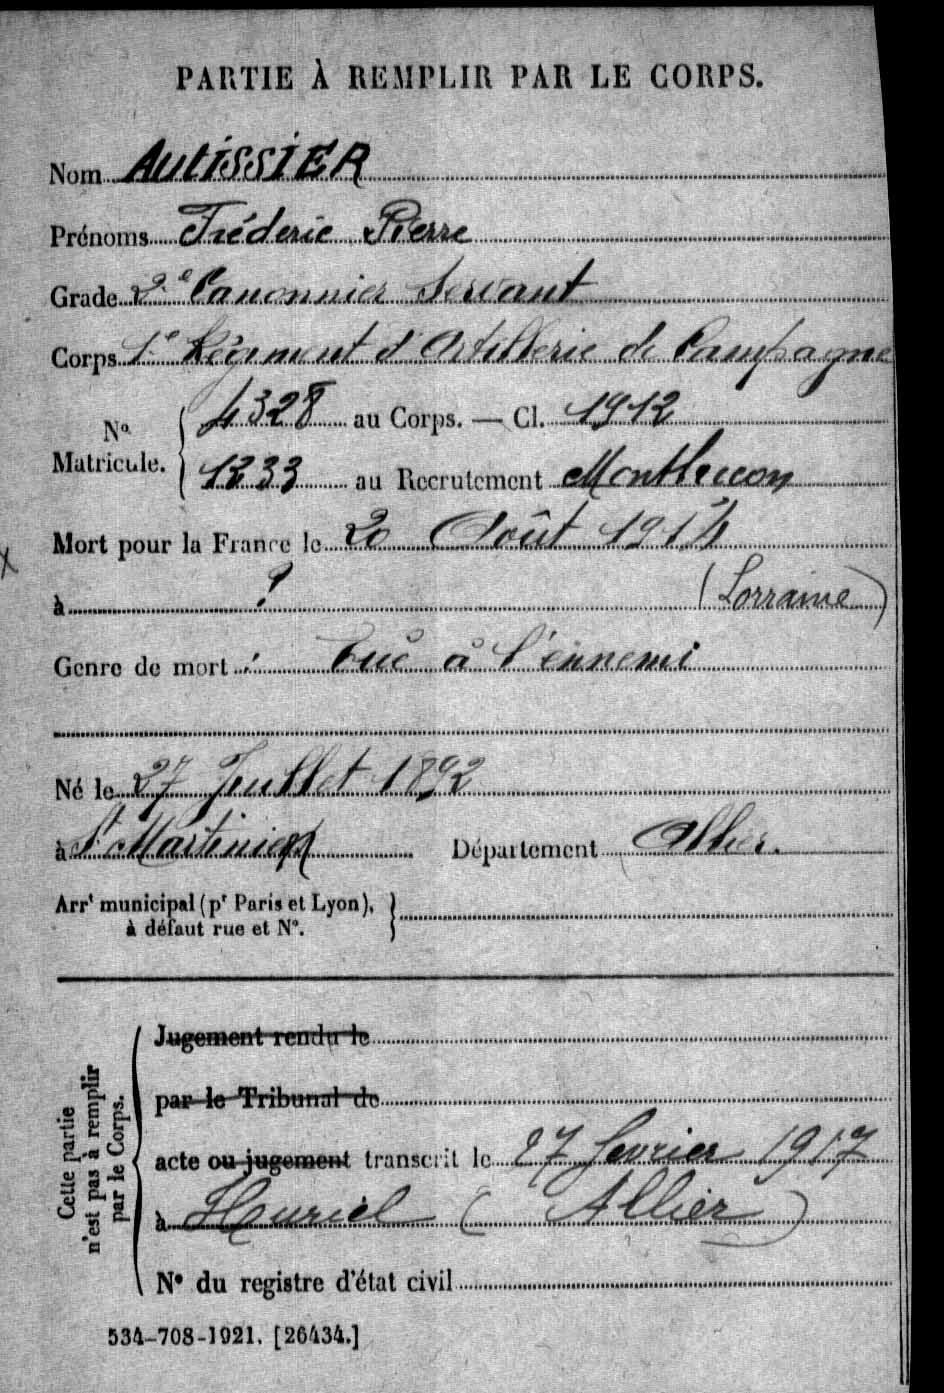 PARTIE À REMPLIR PAR LE CORPS.
Nom AUTISSIER
Prénoms Fréderic Pierre
Grade 2e Canonnier Servant
Corps 1e Régiment d'Artillerie de Campagne
No Matricule. 4328 au Corps. — Cl. 1912
1233 au Recrutement Montluçon
Mort pour la France le 20 Août 1914
à ? (Lorraine)
Genre de mort : Tué à l'ennemi
Né le 27 Juillet 1892
à St Martinien Département Allier.
Arrt municipal (pr Paris et Lyon),
à défaut rue et N°.
Cette partie n'est pas à remplir par le Corps.
Jugement rendu le
par le Tribunal de
acte ou jugement transcrit le 27 fevrier 1917
à Huriel (Allier)
N° du registre d'état civil
534-708-1921. [26434.]